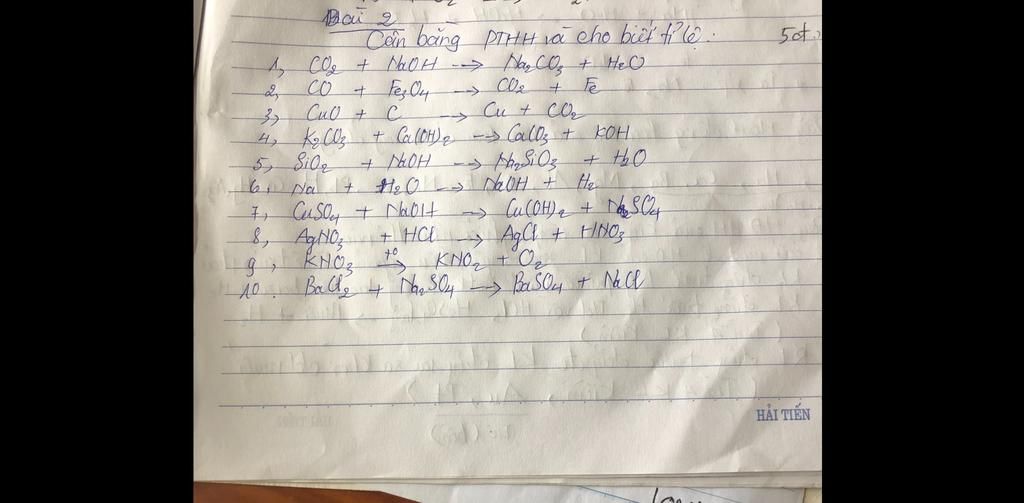 Bài 2
Cân bằng PTHH và cho biết tỉ lệ: 5đ
1, CO₂ + NaOH --> Na₂CO₃ + H₂O
2, CO + Fe₃O₄ --> CO₂ + Fe
3, CuO + C --> Cu + CO₂
4, K₂CO₃ + Ca(OH)₂ --> CaCO₃ + KOH
5, SiO₂ + NaOH --> Na₂SiO₃ + H₂O
6, Na + H₂O --> NaOH + H₂
7, CuSO₄ + NaOH --> Cu(OH)₂ + Na₂SO₄
8, AgNO₃ + HCl --> AgCl + HNO₃
9, KNO₃ -t°-> KNO₂ + O₂
10. BaCl₂ + Na₂SO₄ --> BaSO₄ + NaCl
HẢI TIẾN